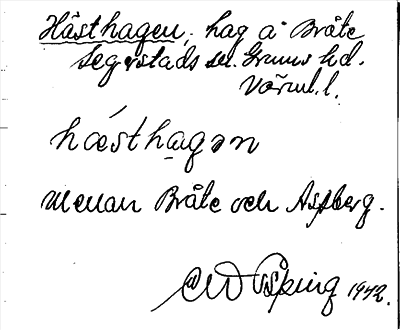 Hästhagen, hag å Bråte
Segerstads sn. Grums hd.
Värml.l.
hǽsthagən
mellan Bråte och Aspberg.
1942.